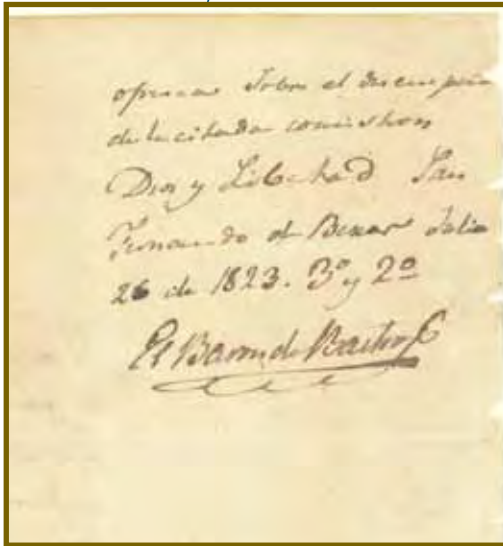 sobre el desempeño
de la citada comission
Dios y Libertad San
Fernando de Bexar Julio
26 de 1823. 3º y 2º
El Baron de Bastrop